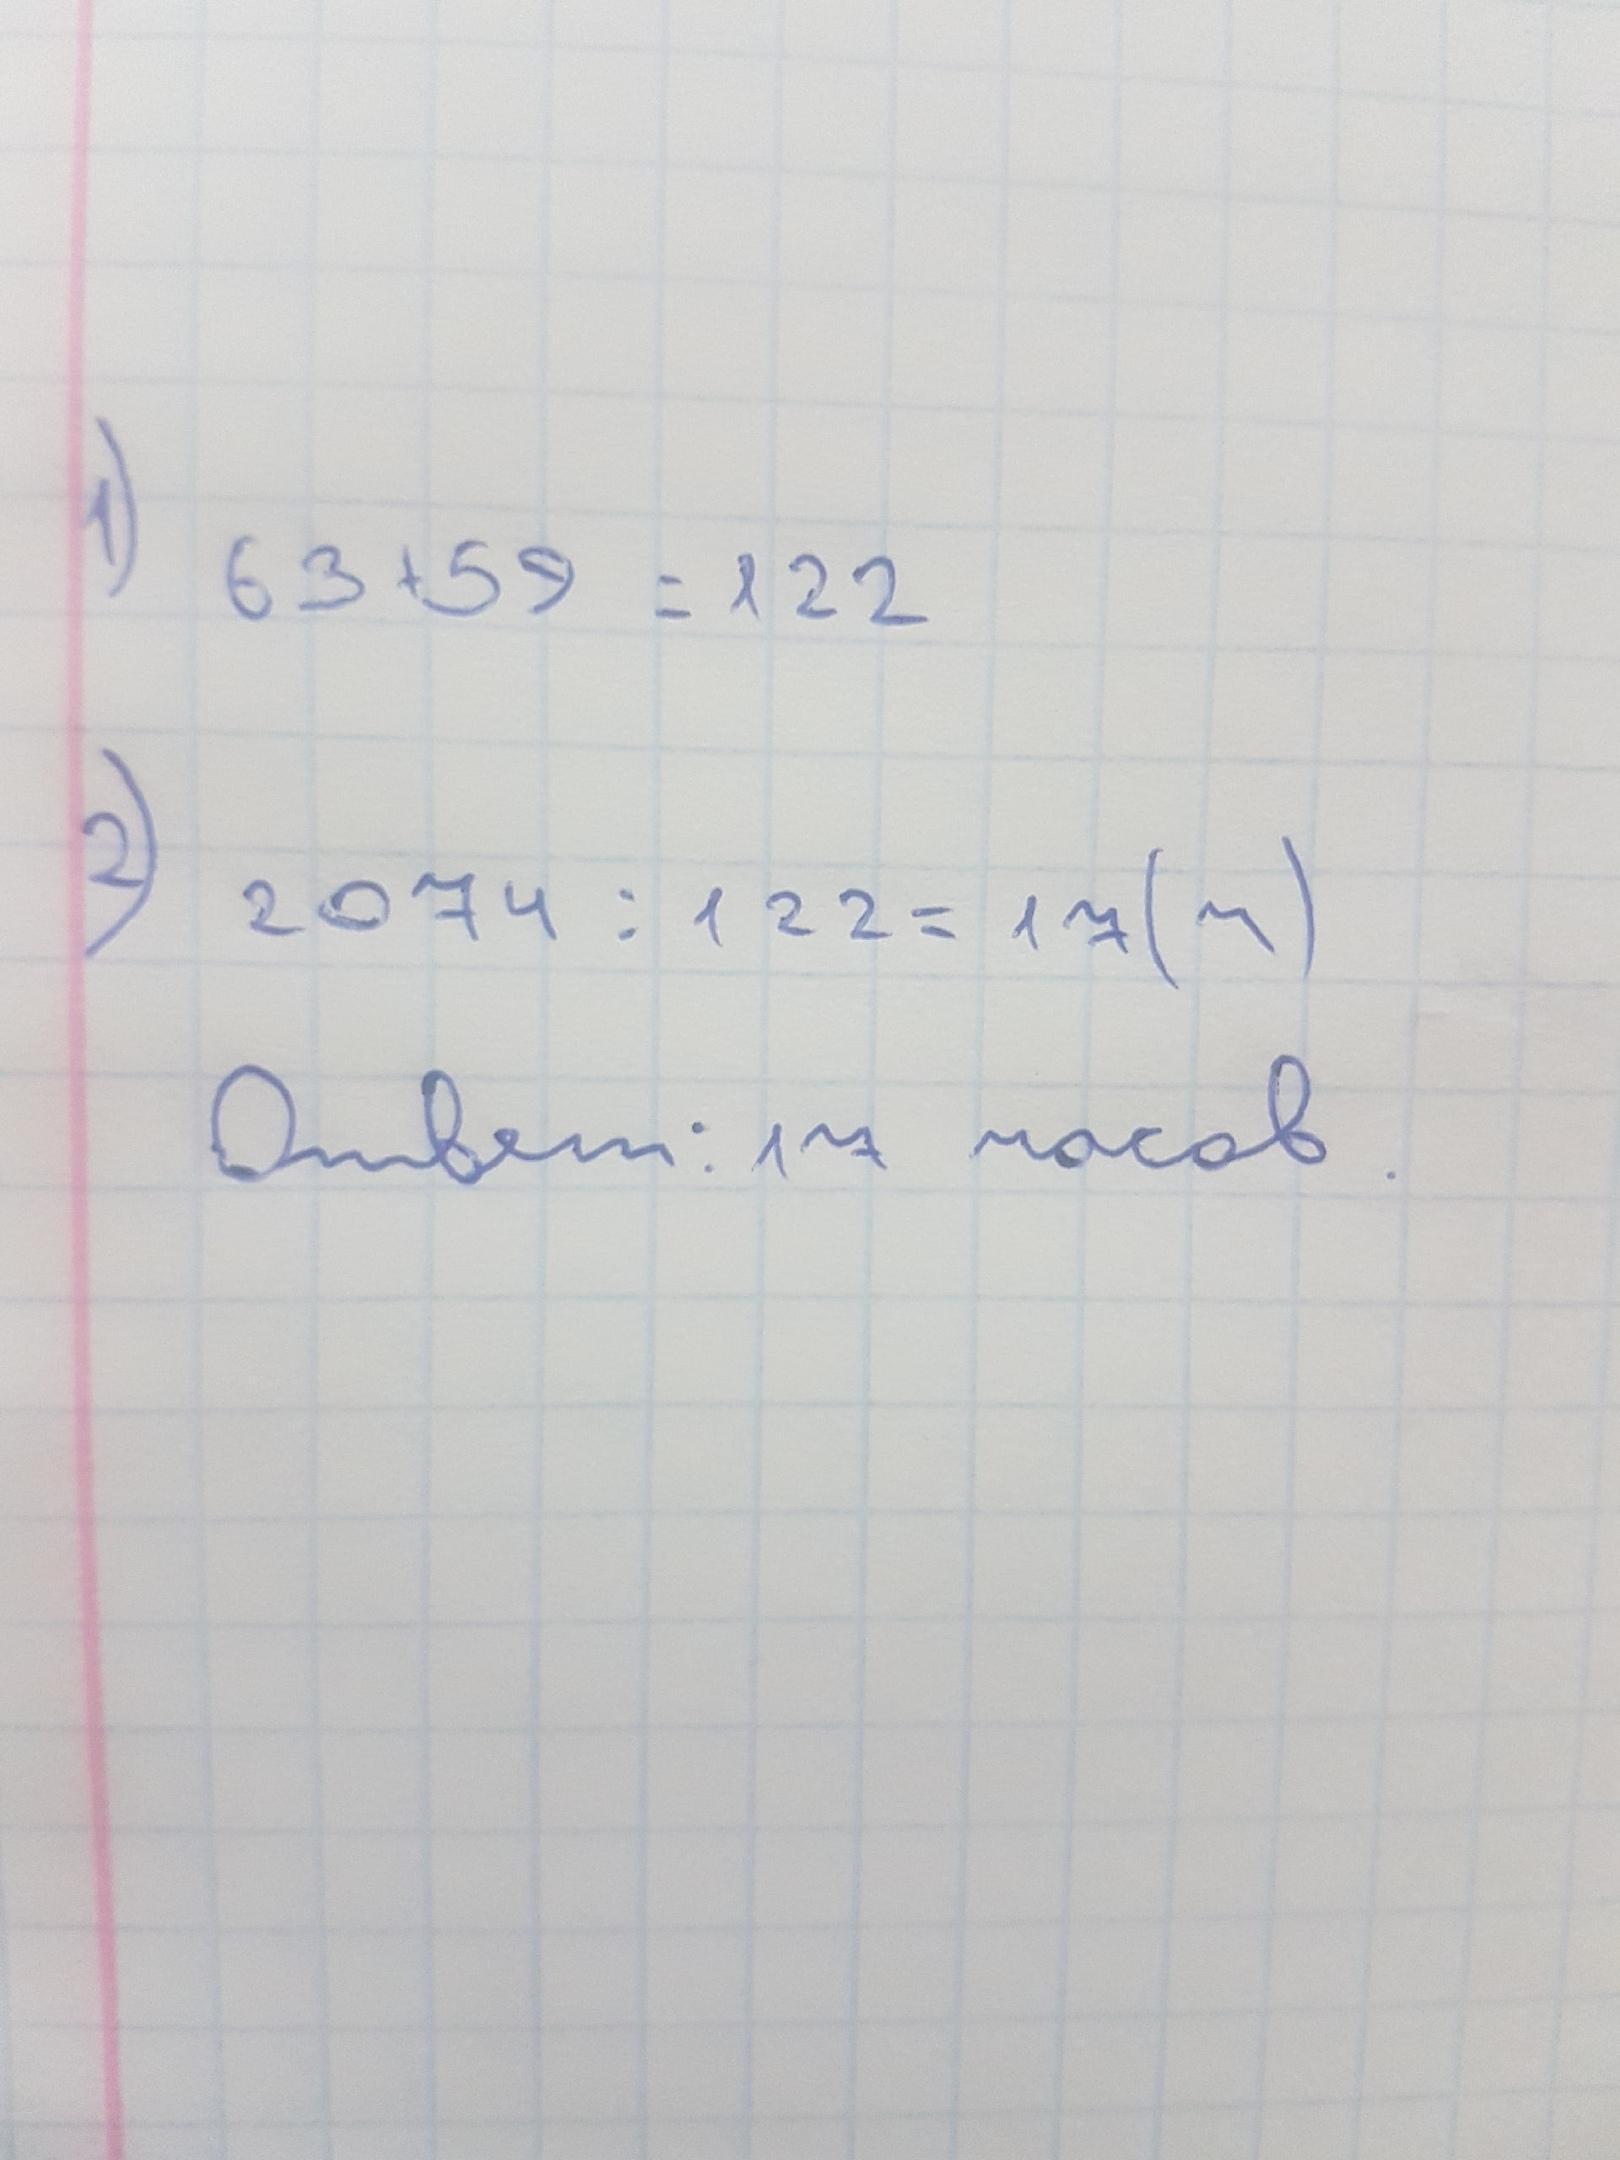 1) 63+59 = 122
2) 2074 : 122 = 17(ч)
Ответ: 17 часов.